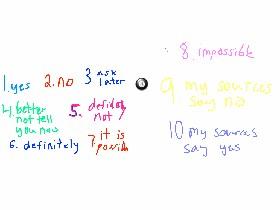 1. yes
2. no
3 ask
later
4. better
not tell
you now
5. definitely
not
6. definitely
7. it is
8. impossible
9 my sources
say no
10 my sources
say yes